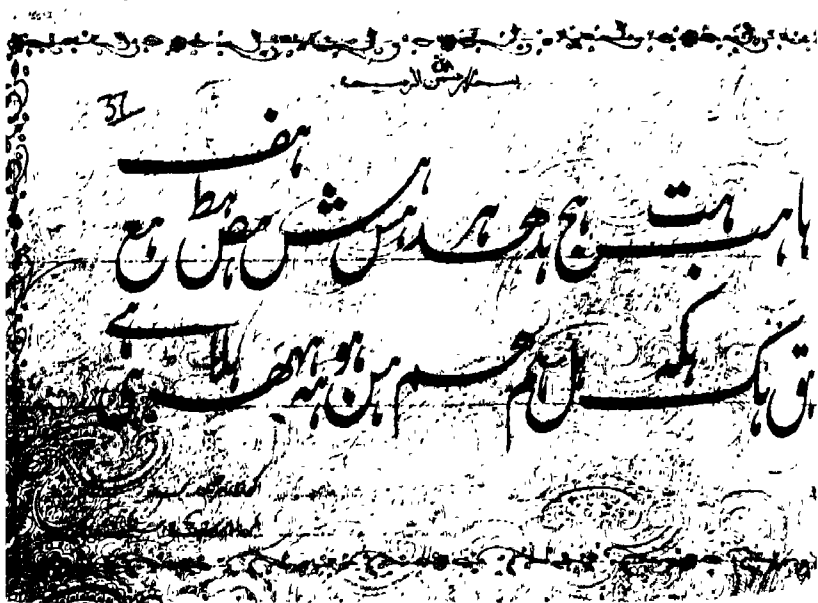 بسم الله الرحمن الرحیم
ها هب هت هج هد هر هس هش هص هط هع هف
هق هک هل هم هم هن هو هه هلا هی هے